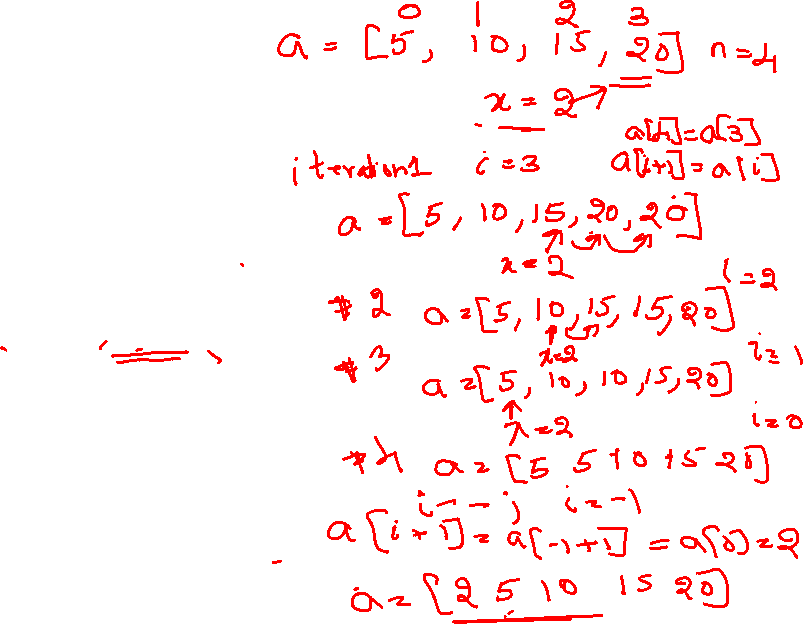 0 1 2 3
a = [5, 10, 15, 20] n=4
x = 2
a[4]=a[3]
iteration1 i=3 a[i+1]=a[i]
a=[5, 10, 15, 20, 20]
x=2
i=2
#2 a=[5, 10, 15, 15, 20]
x=2
i=1
#3 a=[5, 10, 10, 15, 20]
x=2
i=0
#4 a=[5 5 10 15 20]
i--; i=-1
a[i+1]=a[-1+1]=a[0]=2
a=[2 5 10 15 20]